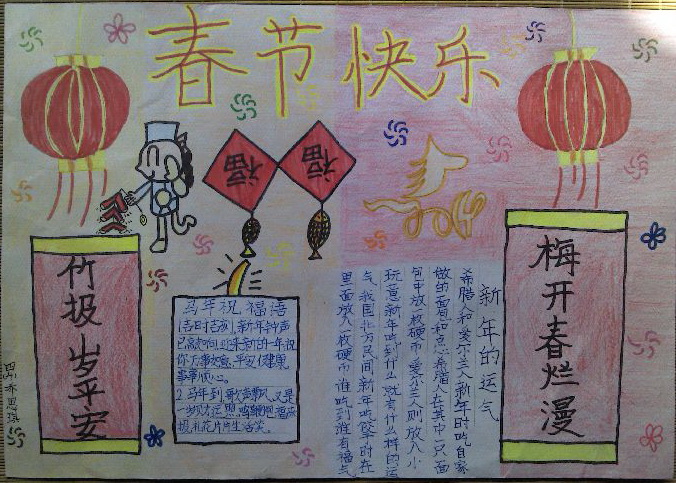 春节快乐
福
福
竹报岁平安
梅开春烂漫
马年祝福语
新年钟声
已敲响,迎来新的一年,祝
你万事如意,平安健康
事事顺心。
2.马年到,歌声飘,又是
新年的运气
希腊和爱尔兰人新年时吃自家
做的面包和点心希腊人在其中一只面
包中放一枚硬币,爱尔兰人则放入小
玩意,新年吃到什么就有什么样的运
气我国北方民间新年吃饺子时在
里面放入一枚硬币谁吃到谁有福气